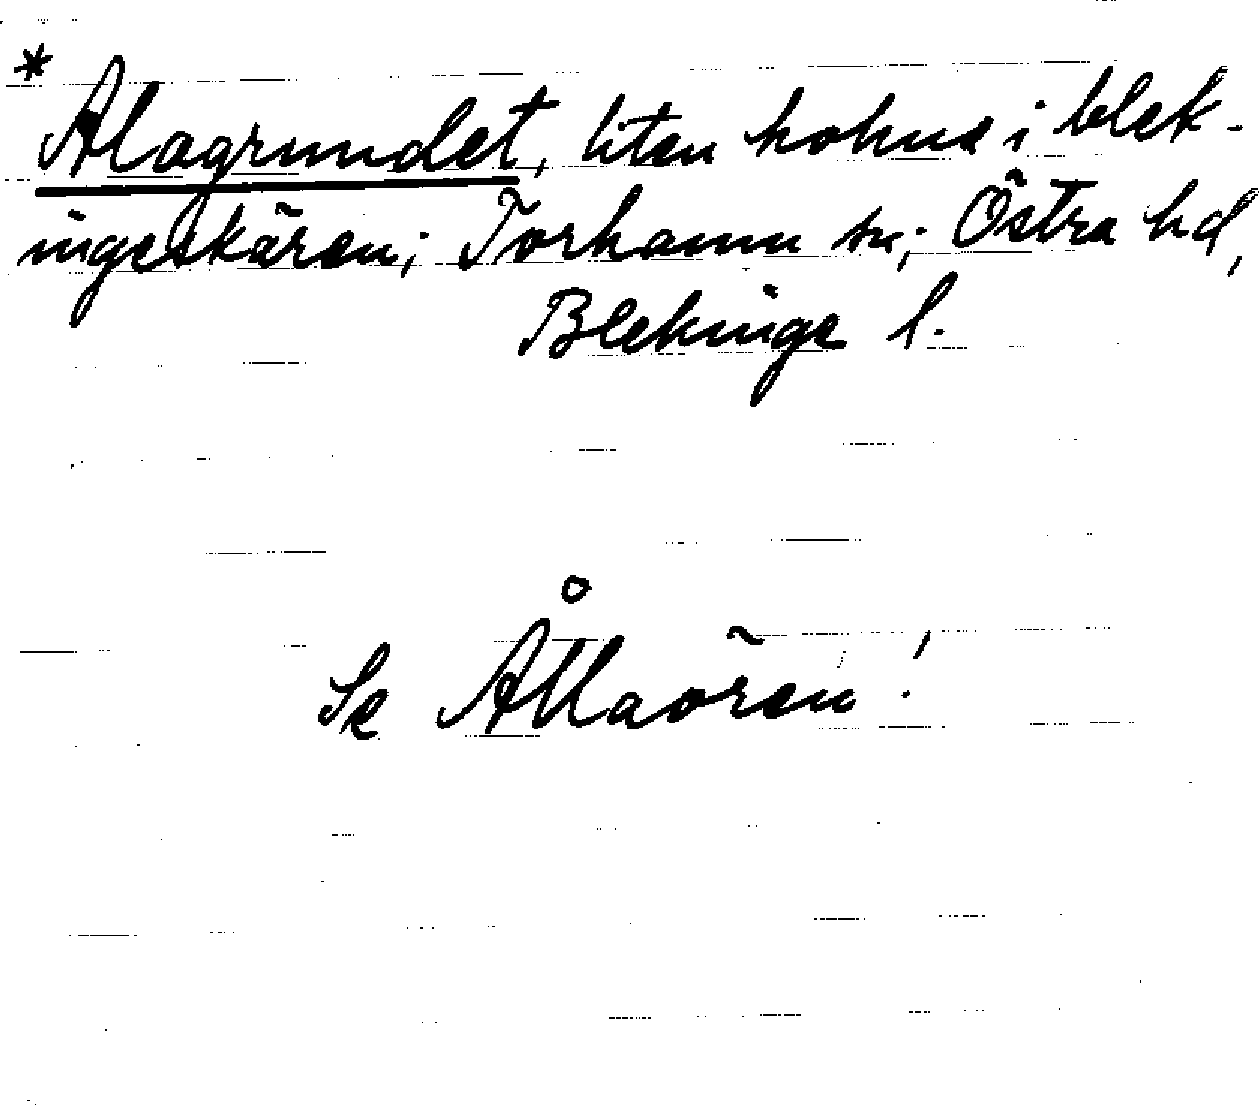 * Alagrundet, liten holme i blek-
ingeskären; Torhamn sn; Östra hd,
Blekinge l.
Se Ållaören!